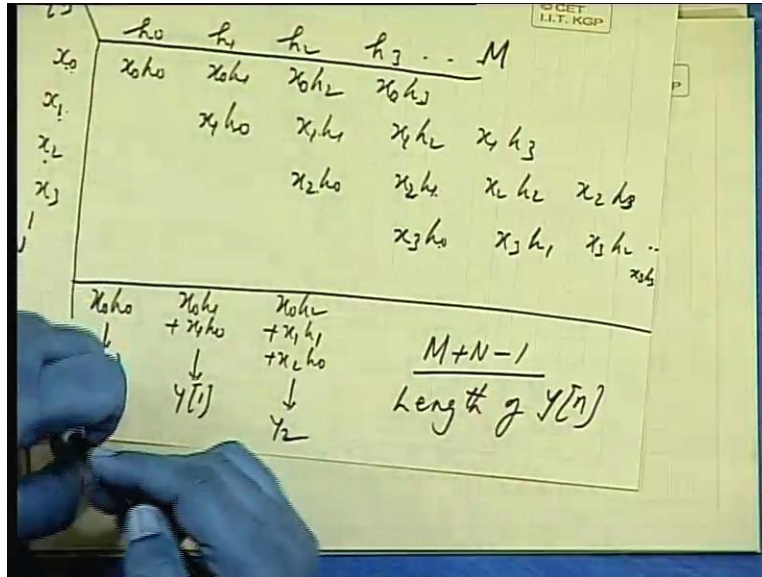 © CET
I.I.T. KGP
h0 h1 h2 h3 .. M
x0 x0h0 x0h1 x0h2 x0h3
x1 x1h0 x1h1 x1h2 x1h3
x2 x2h0 x2h1 x2h2 x2h3
x3 x3h0 x3h1 x3h2 ..
x3h3
x0h0 x0h1 x0h2
+x1h0 +x1h1
+x2h0
y[1]
y2
M+N-1
Length of y[n]